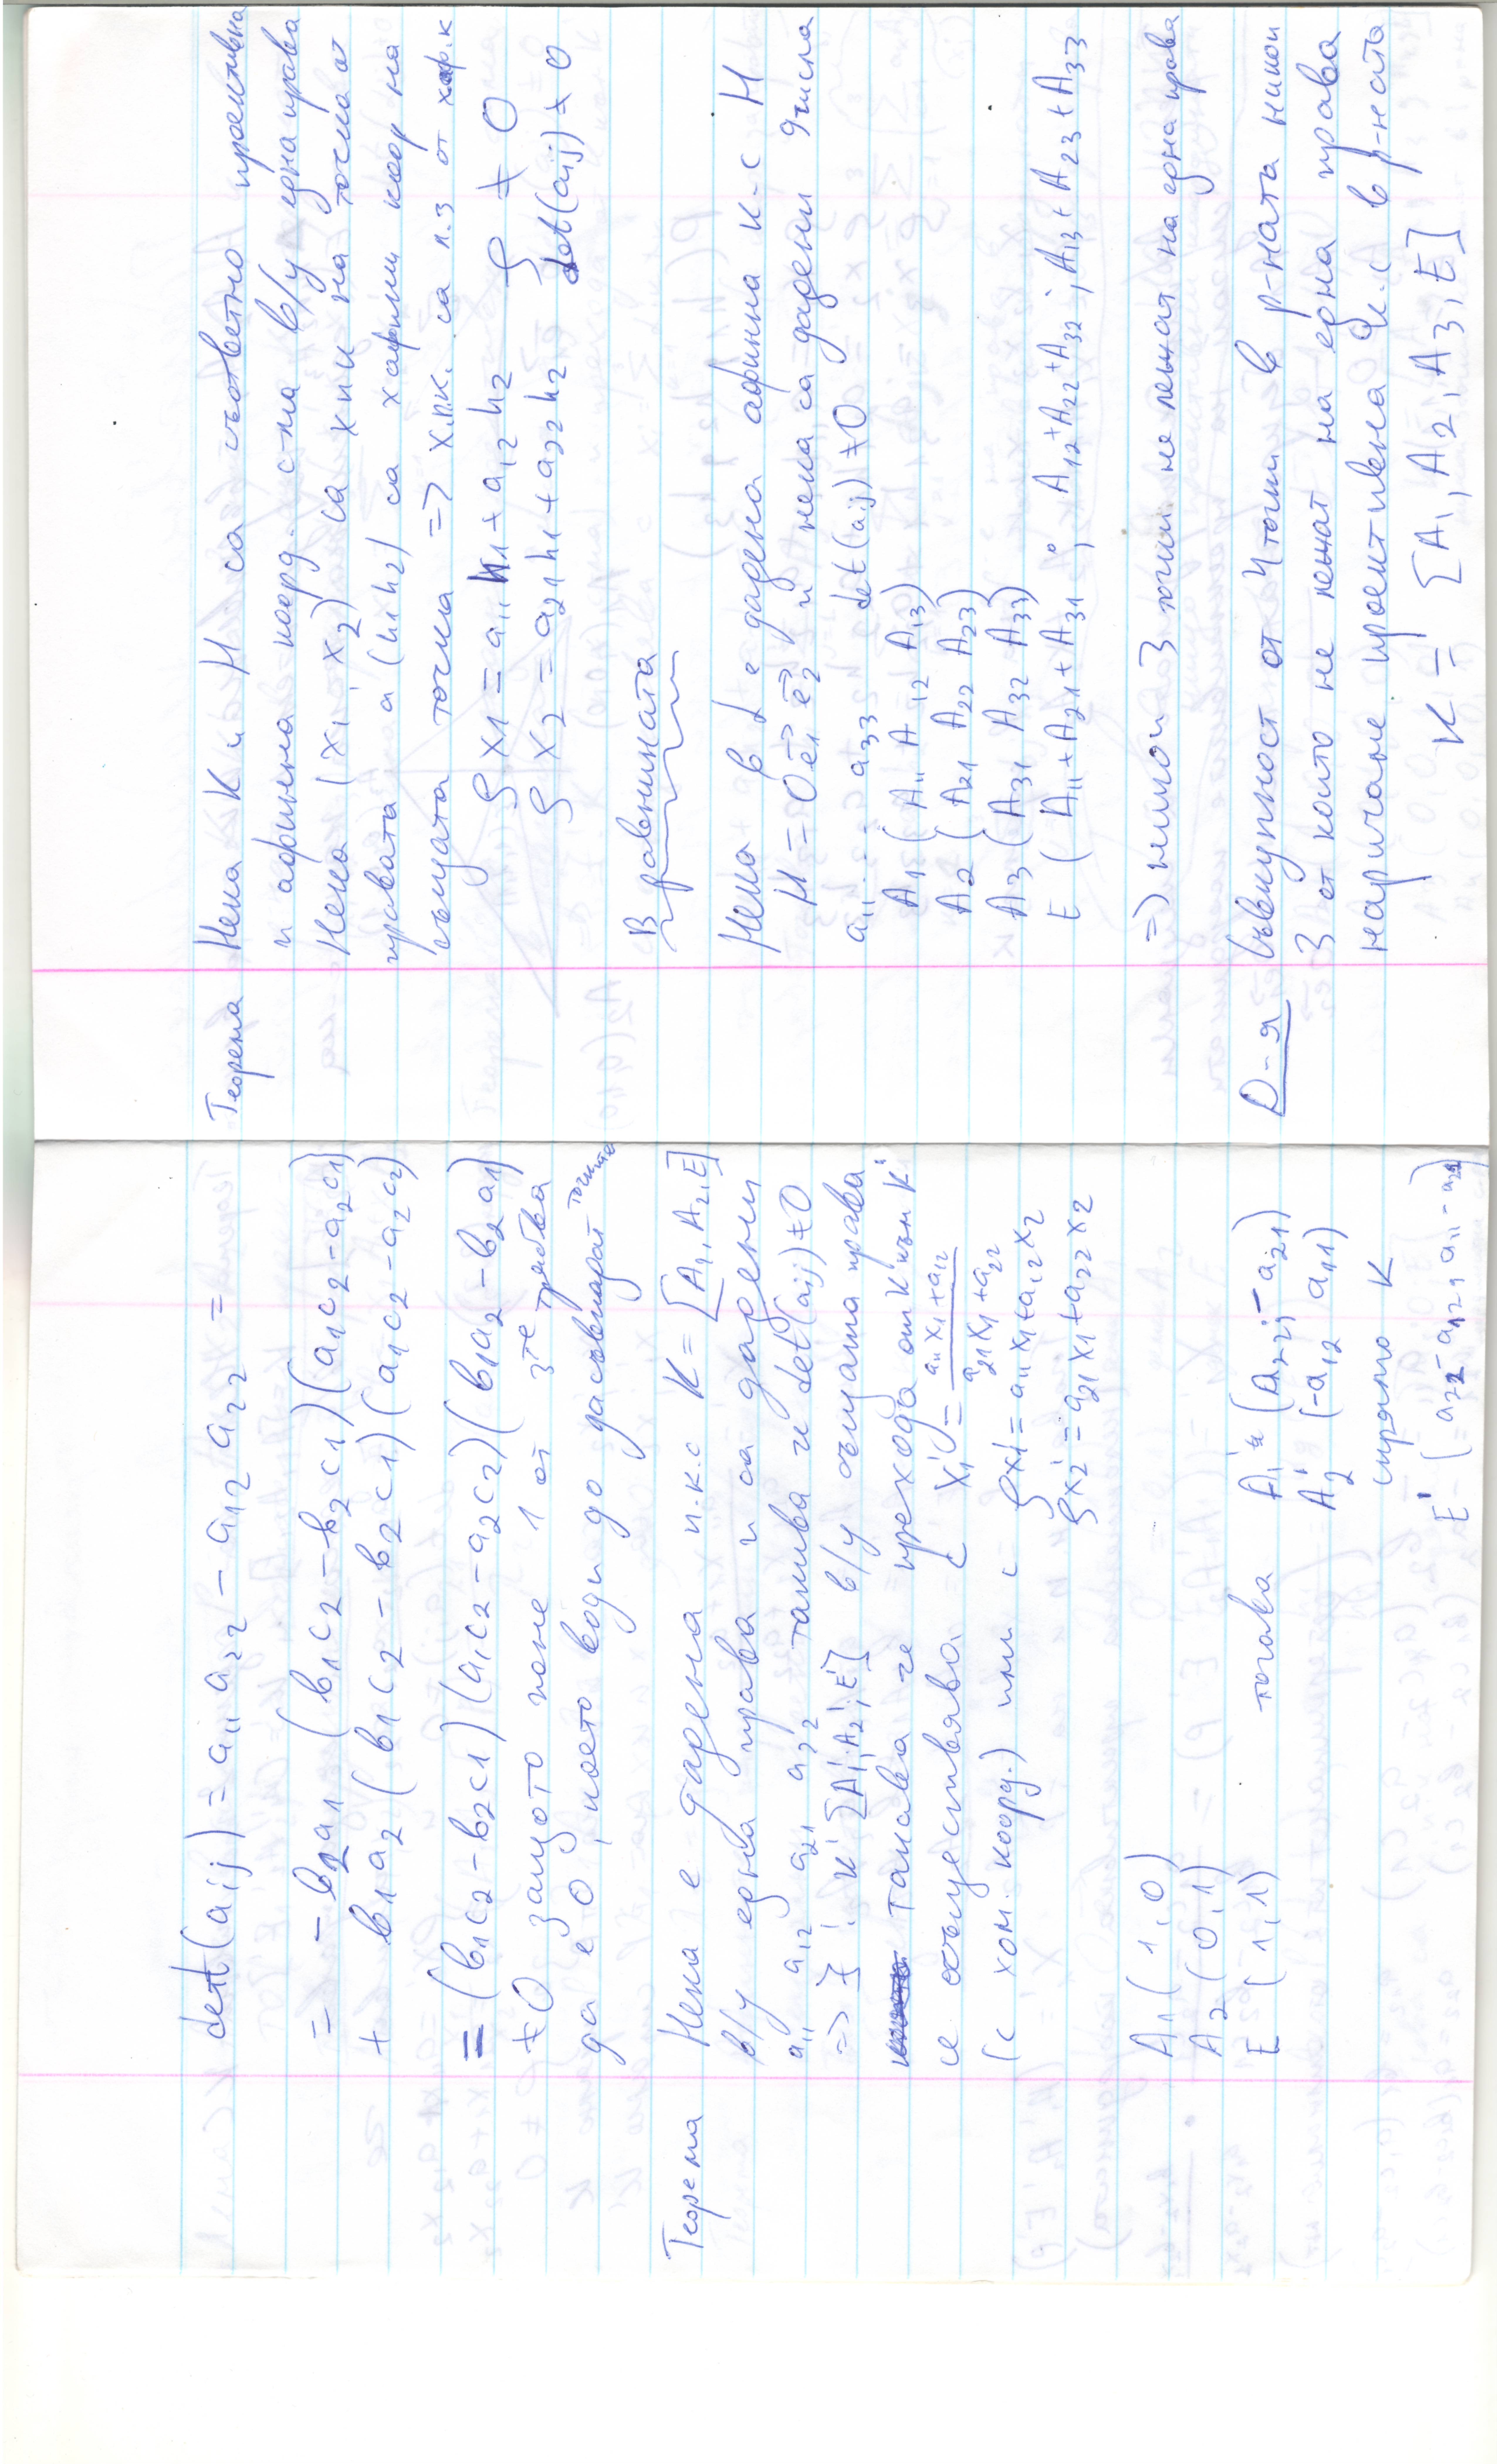 det(aij) = a11 a22 − a12 a22 =
= − в2a1 (в1c2 − в2c1)(a1c2 − a2c1)
+ в1a2 (в1c2 − в2c1)(a1c2 − a2c2)
= (в1c2 − в2c1)(a1c2 − a2c2)(в1a2 − в2a1)
≠ 0 защото поне 1 от 3те трябва
да е 0, което води до да съвпадат точките
Теорема Нека е дадена п.к.с K = [A1, A2, E]
в/у една права и са дадени
a11 a12 a21 a22 такива че det(aij) ≠ 0
=> ∃! K' [A1', A2', E'] в/у същата права
такава че прехода от K към K'
се осъществява с x1' = a11x1 + a12 / a21x1 + a22
(с хом. коорд.) или с ρx1' = a11x1 + a12x2
ρx2' = a21x1 + a22x2
A1 (1, 0)
A2 (0, 1)
E (1, 1) тогава A1' (a22, − a21)
A2' (−a12 a11)
спрямо K
E' (a22 − a12, a11 − a21)
Теорема Нека K и H са съответно проективна
и афинна коорд. с-ма в/у една права
Нека (x1, x2) са хпк на точка от
правата а (h1 h2) са хафинни коор на
същата точка => х.п.к. са л.з от хаф.к
ρ x1 = a11 h1 + a12 h2 ρ ≠ 0
ρ x2 = a21 h1 + a22 h2 det(aij) ≠ 0
В равнината
Нека в L е дадена афинна к-с H
H = O e1 e2 и нека са дадени 9 числа
a11 ... a33 det(aij) ≠ 0
A1 (A11 A12 A13)
A2 (A21 A22 A23)
A3 (A31 A32 A33)
E (A11 + A21 + A31, A12 + A22 + A32, A13 + A23 + A33
=> никои 3 точки не лежат на една права
D-я Съвкупност от 4 точки в р-ната никои
3 от които не лежат на една права
наричаме проективна к.с в р-ната
K = [A1, A2, A3, E]